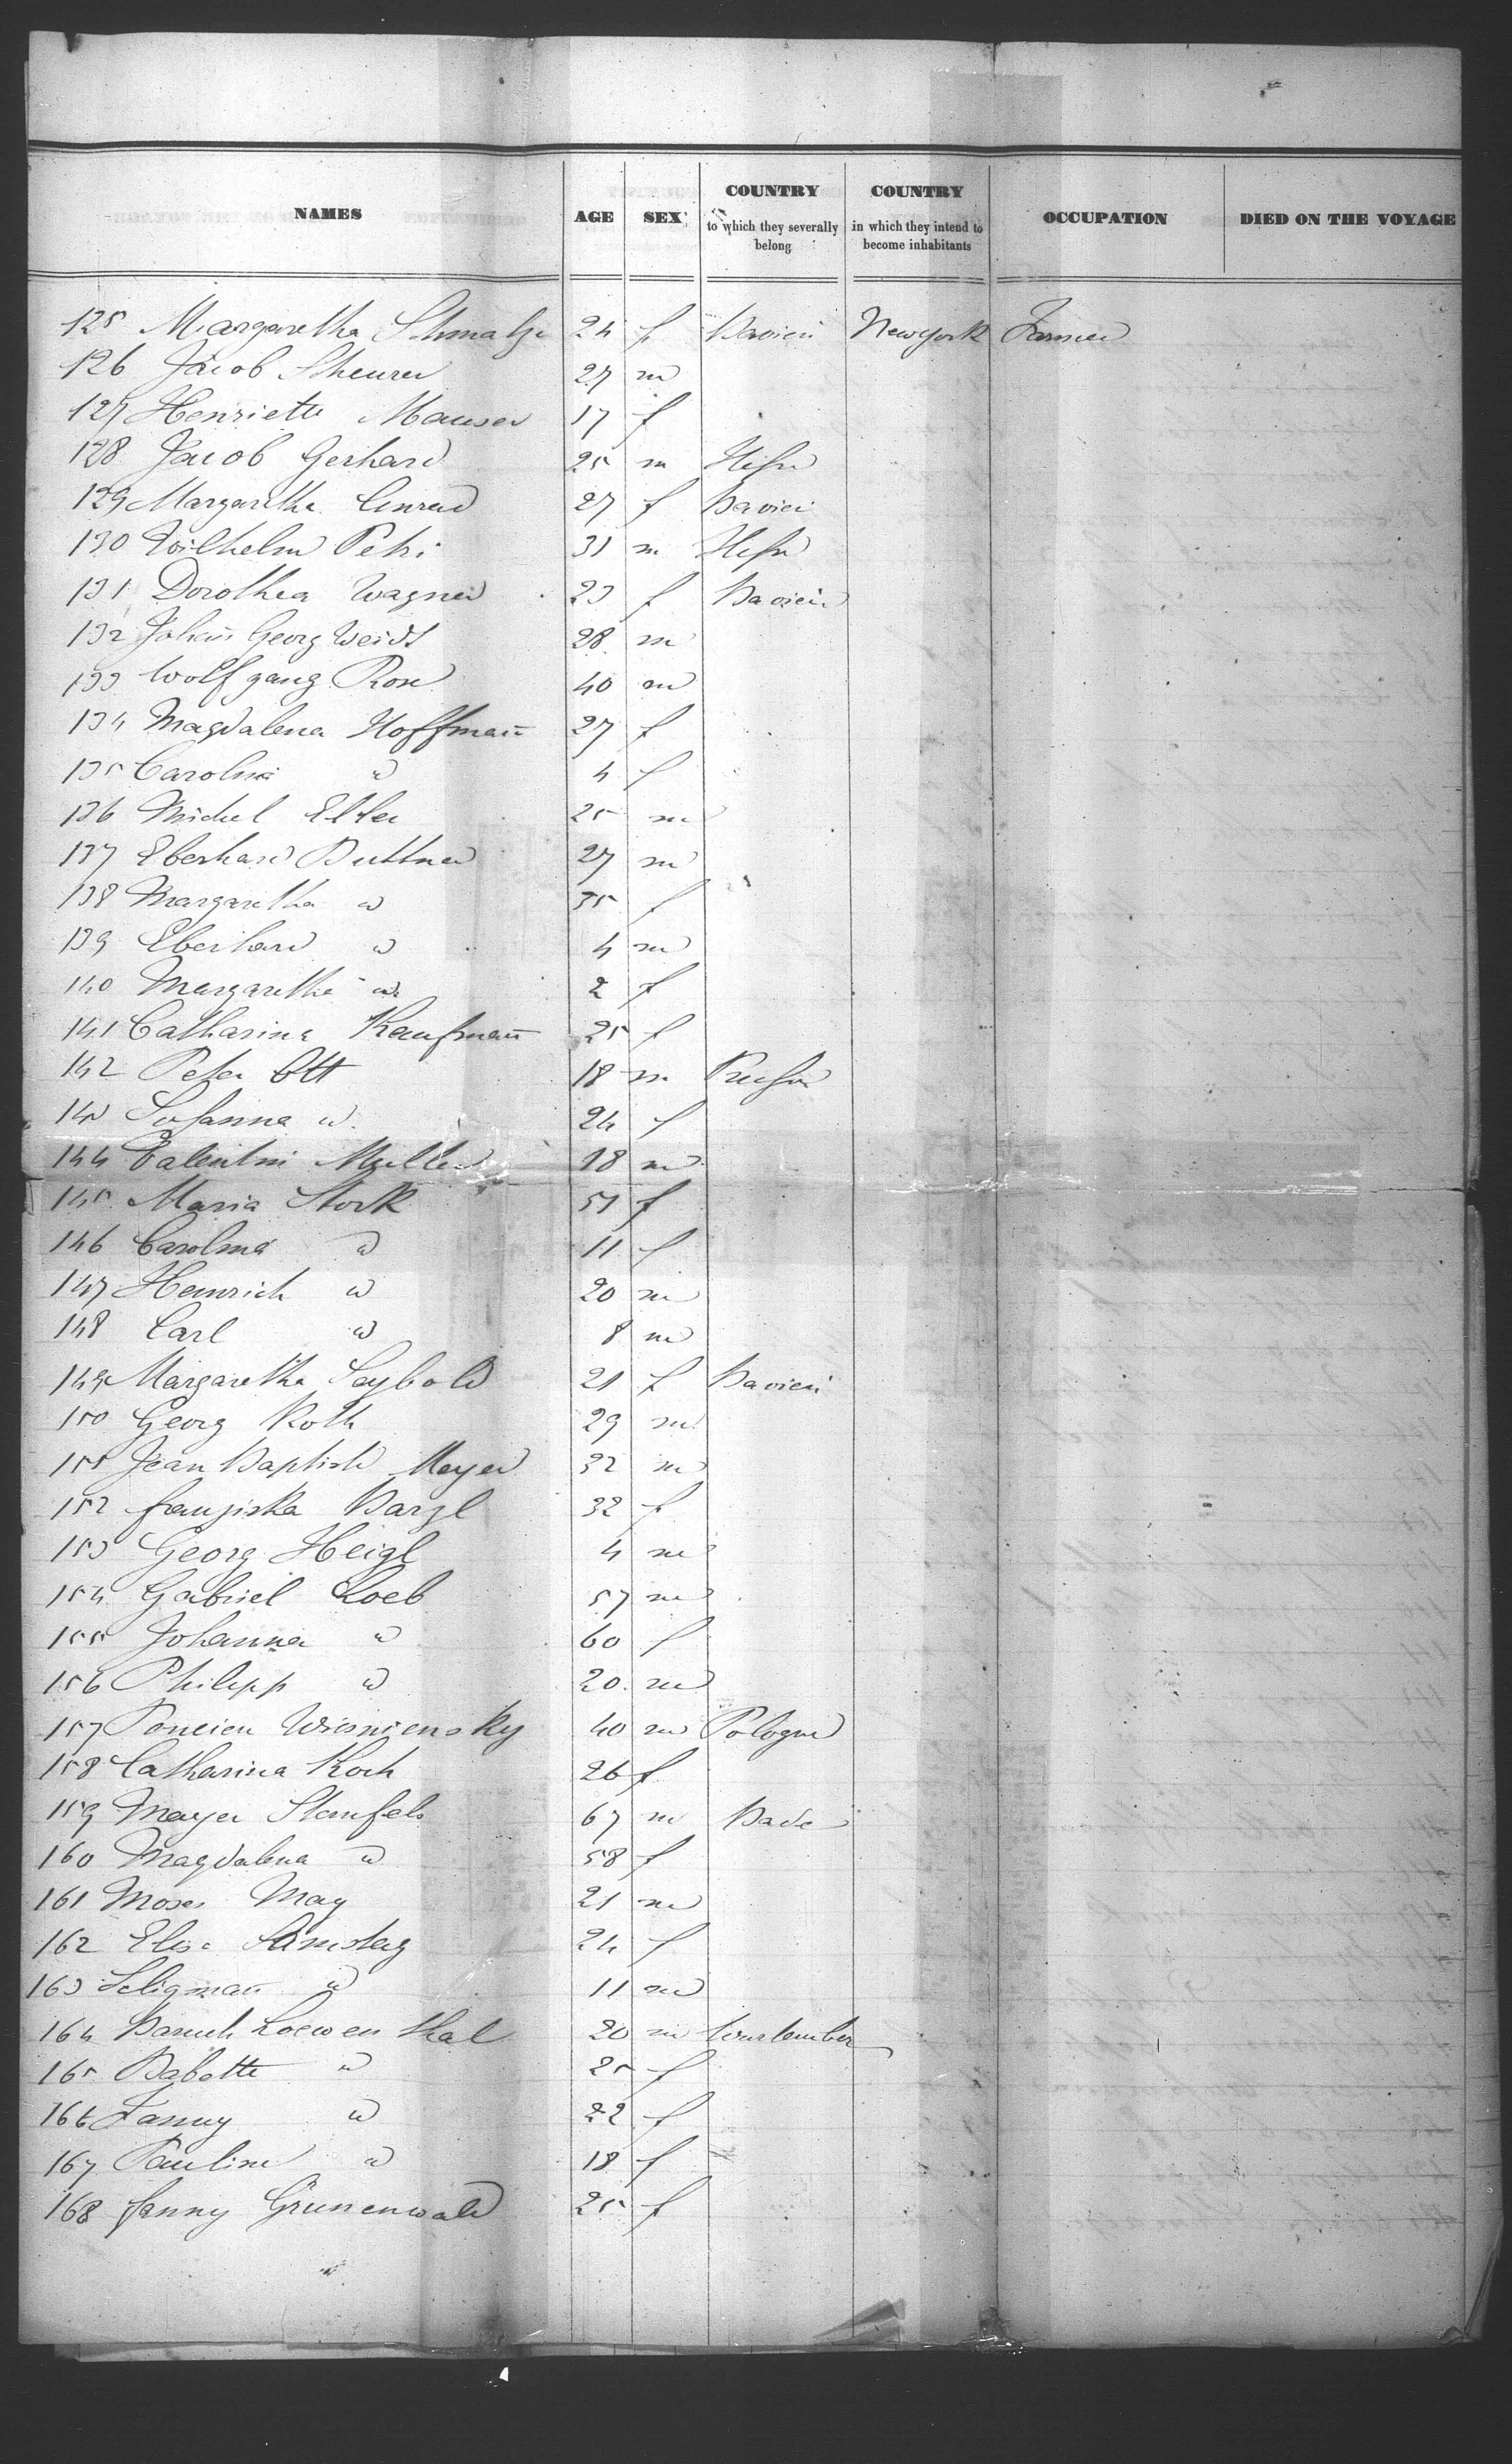 NAMES AGE SEX COUNTRY to which they severally belong COUNTRY in which they intend to become inhabitants OCCUPATION DIED ON THE VOYAGE
125 Margaretha Schmalz 24 f Bavière Newyork Farmer
126 Jacob Scheurer 27 m
127 Henriette Mauser 17 f
128 Jacob Gerhard 25 m Hesse
129 Margaretha Conrad 27 f Bavière
130 Wilhelm Petri 31 m Hesse
131 Dorothea Wagner 23 f Bavière
132 Johañ Georg Weidt 28 m
133 Wolfgang Rose 40 m
134 Magdalena Hoffmañ 27 f
135 Carolina " 4 f
136 Michel 25 m
137 Eberhard Buttner 27 m
138 Margaretha " 35 f
139 Eberhard " 4 m
140 Margaretha " 2 f
141 Catharina Kaufmañ 25 f
142 Peter Ott 18 m Prusse
143 Susanna " 24 f
144 Valentin Muller 18 m
145 Maria Stork 51 f
146 Carolina " 11 f
147 Heinrich " 20 m
148 Carl " 8 m
149 Margaretha Seybold 21 f Bavière
150 Georg Roth 29 m
151 Jean Baptiste Meyer 32 m
152 Franziska Bargl 32 f
153 Georg Heigl 4 m
154 Gabriel Loeb 57 m
155 Johanna " 60 f
156 Philipp " 20 m
157 Wisniensky 40 m Pologne
158 Catharina Koch 26 f
159 Mayer 67 m Bade
160 Magdalena " 58 f
161 Moses May 21 m
162 Elise Samstag 24 f
163 Seligmañ " 11 m
164 Baruch Loewenthal 20 m Wurtemberg
165 Babette " 25 f
166 Fanny " 22 f
167 Pauline " 18 f
168 Fanny Grunenwald 25 f